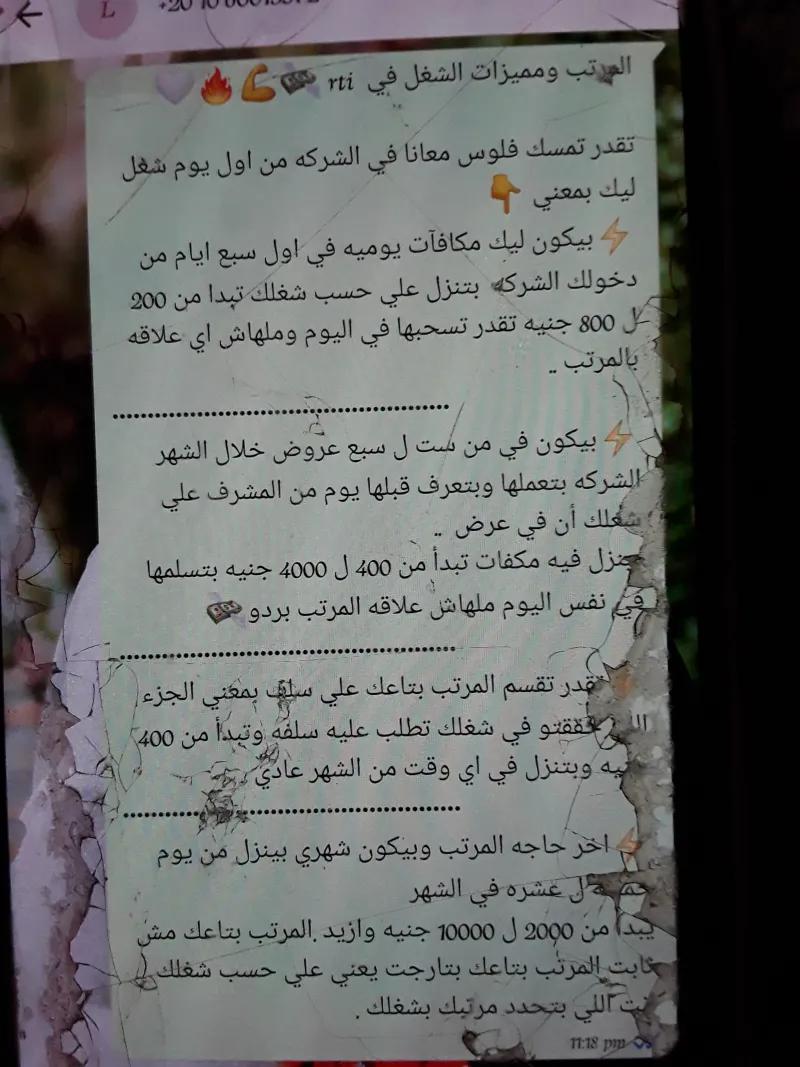 L
المرتب ومميزات الشغل في rti 💸💪🔥🤍
تقدر تمسك فلوس معانا في الشركه من اول يوم شغل
ليك بمعني 👇
⚡ بيكون ليك مكافآت يوميه في اول سبع ايام من
دخولك الشركه بتنزل علي حسب شغلك تبدا من 200
ل 800 جنيه تقدر تسحبها في اليوم وملهاش اي علاقه
بالمرتب ..
............................................
⚡ بيكون في من ست ل سبع عروض خلال الشهر
الشركه بتعملها وبتعرف قبلها يوم من المشرف علي
شغلك أن في عرض ..
فيه مكفات تبدأ من 400 ل 4000 جنيه بتسلمها
في نفس اليوم ملهاش علاقه المرتب بردو 💸
............................................
تقدر تقسم المرتب بتاعك علي سلف بمعني الجزء
في شغلك تطلب عليه سلفه وتبدأ من 400
وبتنزل في اي وقت من الشهر عادي
............................................
⚡ اخر حاجه المرتب وبيكون شهري بينزل من يوم
ل عشره في الشهر
يبدأ من 2000 ل 10000 جنيه وازيد .المرتب بتاعك مش
ثابت المرتب بتاعك بتارجت يعني علي حسب شغلك
اللي بتحدد مرتبك بشغلك .
11:18 pm